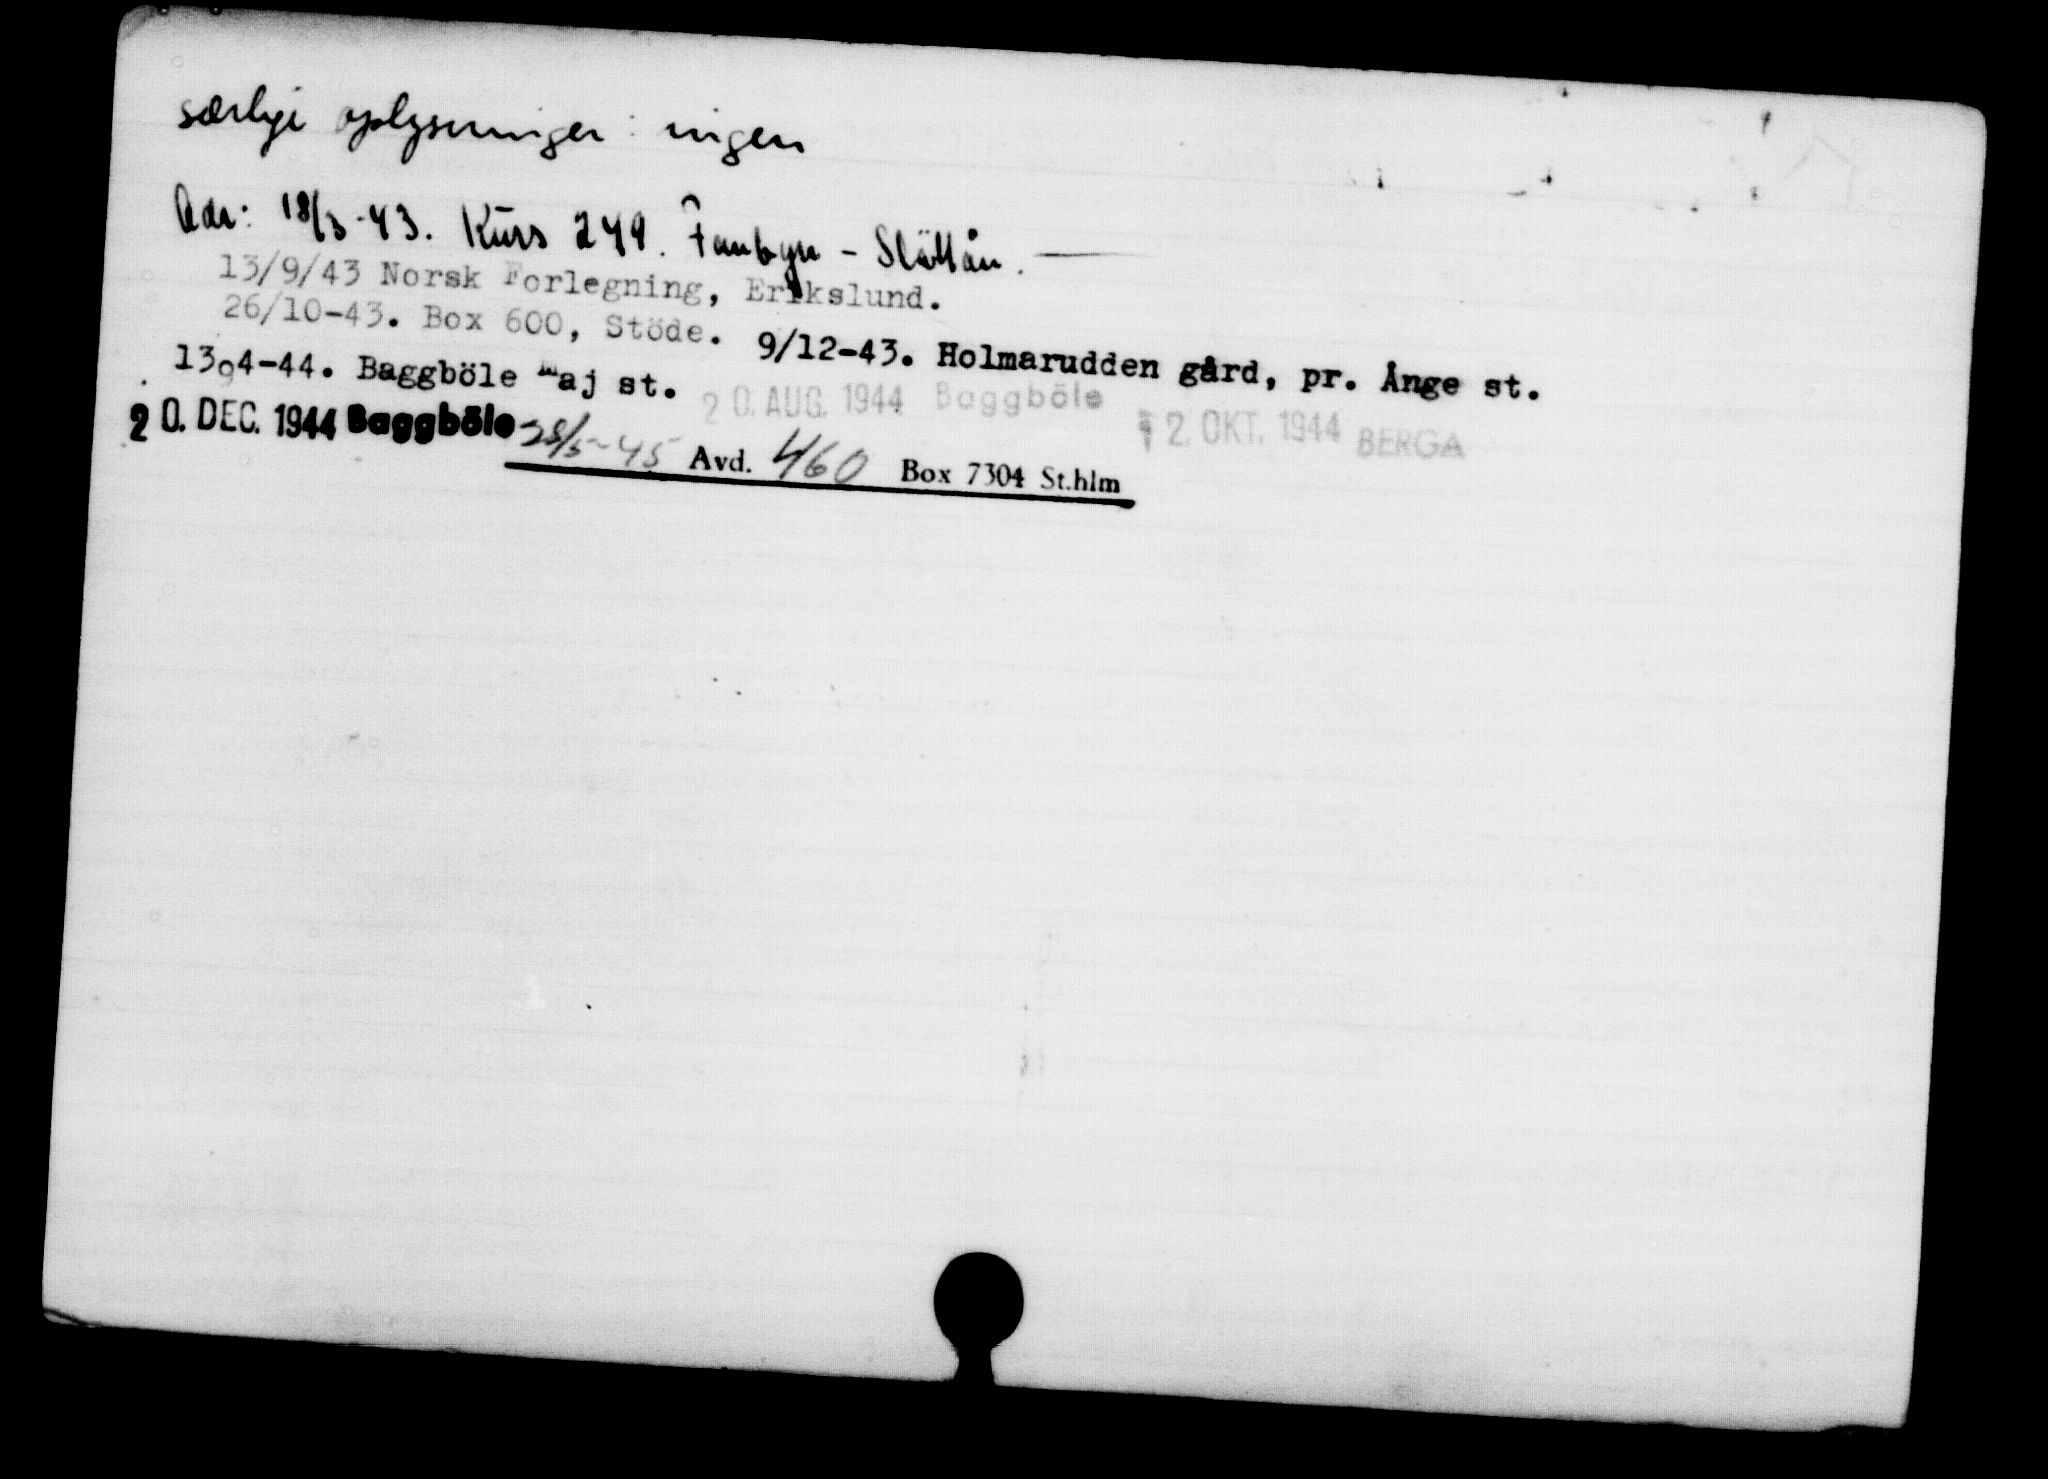 særlige oplysninger: ingen
Adr: 18/3-43. Kurs 249. Fanbyn - Slättån.
13/9/43 Norsk Forlegning, Erikslund.
26/10-43. Box 600, Stöde. 9/12-43. Holmarudden gård, pr. Ånge st.
13.4-44. Baggböle maj st. 20. AUG. 1944 Baggböle 12. OKT. 1944 BERGA
20. DEC. 1944 Baggböle 28/5-45 Avd. 460 Box 7304 St.hlm